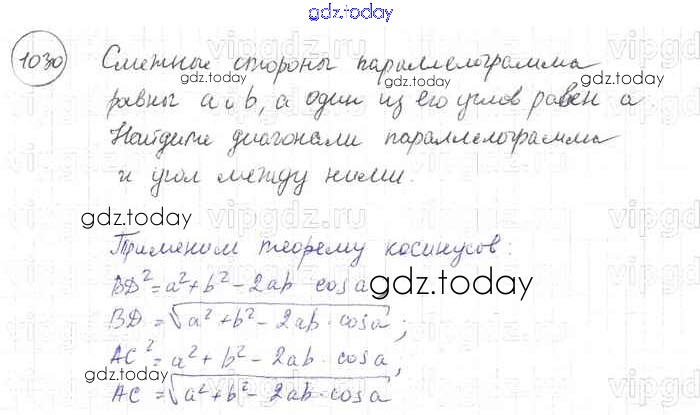 gdz.today
1030 Смежные стороны параллелограмма
gdz.today gdz.today
равны a и b, а один из его углов равен a.
Найдите диагонали параллелограмма
и угол между ними.
gdz.today
vipgdz.ru
Применим теорему косинусов:
BD² = a² + b² - 2ab cos a
gdz.today
BD = √a² + b² - 2ab · cos a;
AC² = a² + b² - 2ab · cos a,
gdz.today
AC = √a² + b² - 2ab · cos a
gdz.today